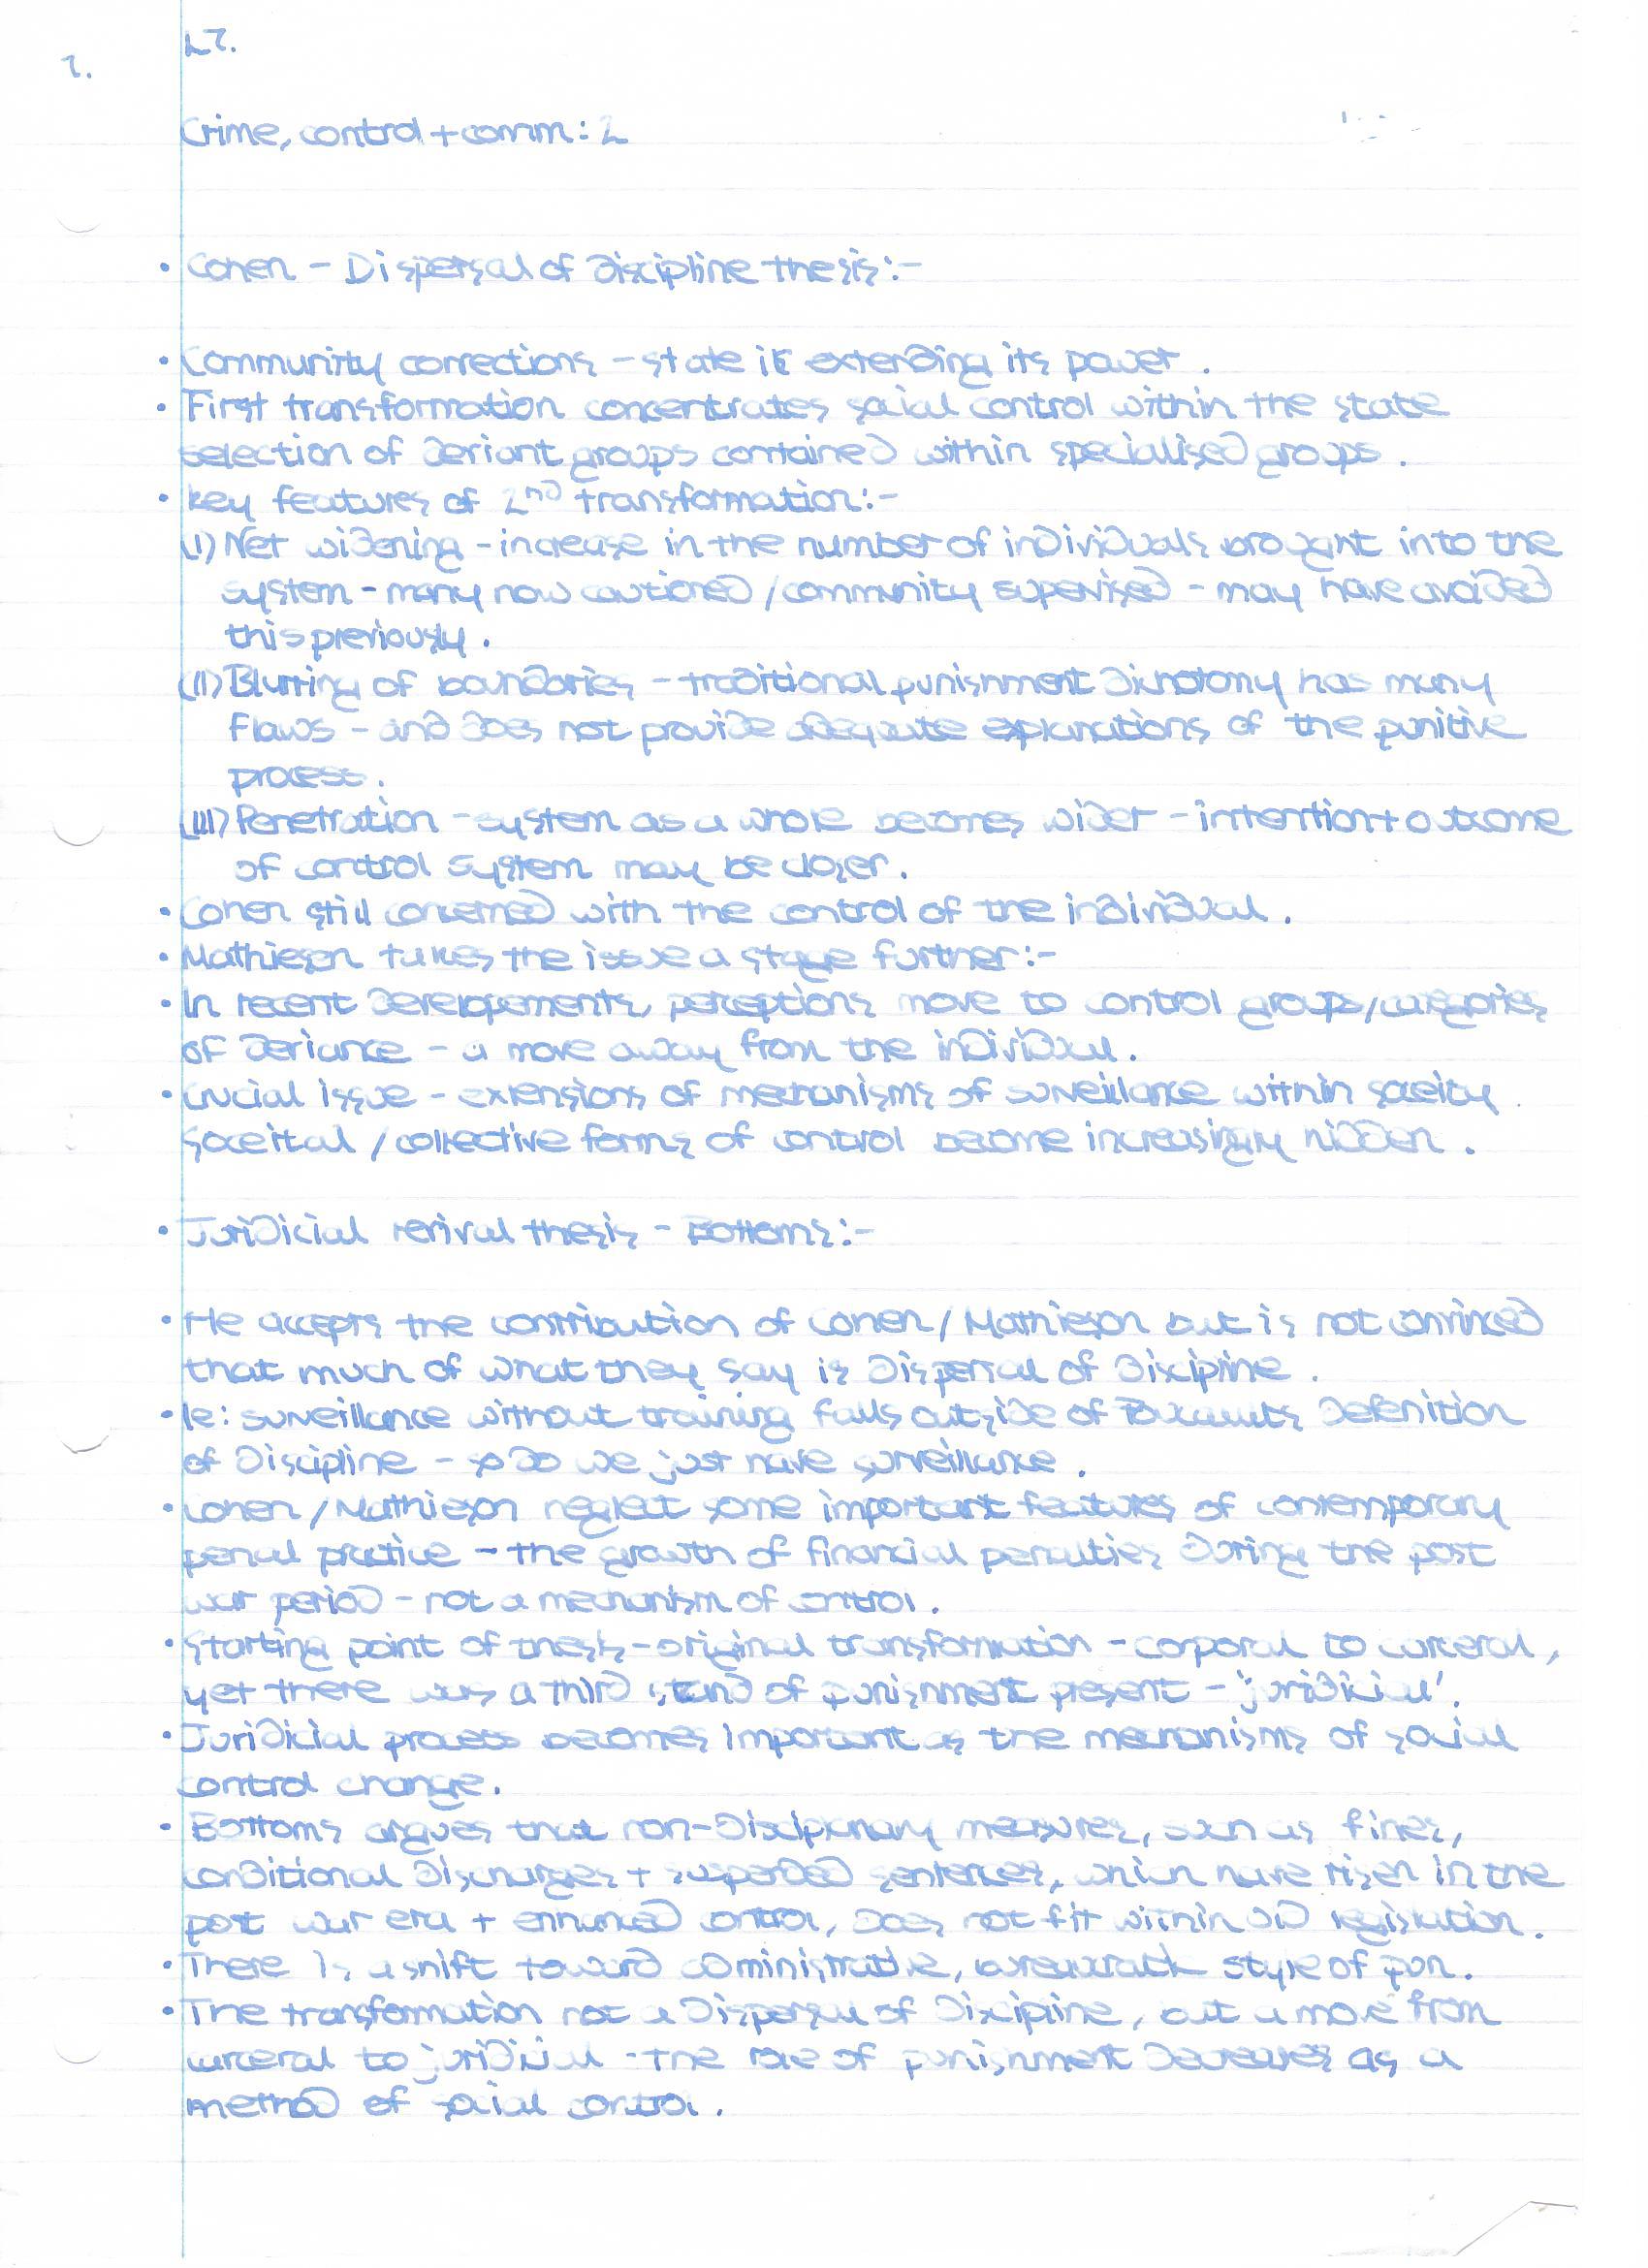 L7.
1.
Crime, control + comm: 2
• Cohen - Dispersal of discipline thesis:-
• Community corrections - state is extending its power.
• First transformation concentrates social control within the state
selection of deviant groups contained within specialised groups.
• Key features of 2nd transformation:-
(I) Net widening - increase in the number of individuals brought into the
system - many now cautioned / community supervised - may have avoided
this previously.
(II) Blurring of boundaries - traditional punishment dichotomy has many
flaws - and does not provide adequate explanations of the punitive
process.
(III) Penetration - system as a whole becomes wider - intention + outcome
of control system may be closer.
• Cohen still concerned with the control of the individual.
• Mathieson takes the issue a stage further:-
• In recent developements, perceptions move to control groups/categories
of deviance - a move away from the individual.
• Crucial issue - extensions of mechanisms of surveillance within soceity.
Soceital / collective forms of control become increasingly hidden.
• Juridicial revival thesis - Bottoms:-
• He accepts the contribution of Cohen / Mathieson but is not convinced
that much of what they say is dispersal of discipline.
• Ie: surveillance without training falls outside of Foucaults defenition
of discipline - so do we just have surveillance.
• Cohen / Mathieson neglect some important features of contemporary
penal practice - the growth of financial penalties during the post
war period - not a mechanism of control.
• Starting point of thesis - original transformation - corporal to carceral,
yet there was a third strand of punishment present - 'juridicial'.
• Juridicial process becomes important as the mechanisms of social
control change.
• Bottoms argues that non-disciplinary measures, such as fines,
conditional discharges + suspended sentences, which have risen in the
post war era + enhanced control, does not fit within old legislation.
• There is a shift toward administrative, bureaucratic style of pun.
• The transformation not a dispersal of discipline, but a move from
carceral to juridicial - the role of punishment decreases as a
method of social control.